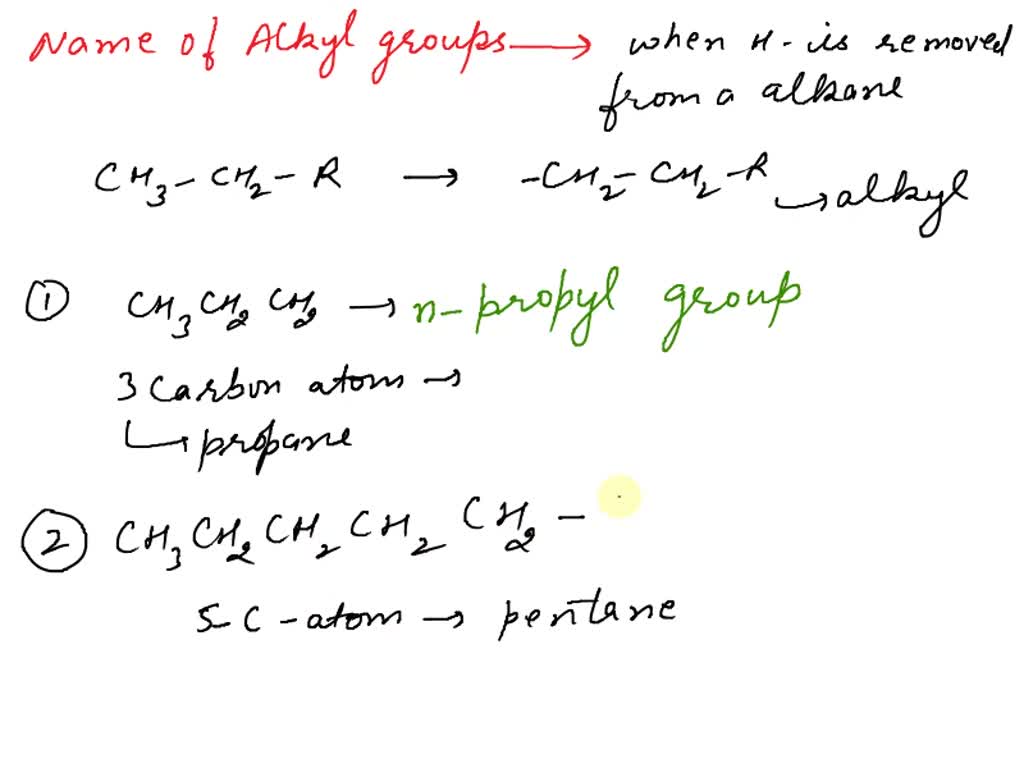 Name of Alkyl groups → when H- is removed
from a alkane
CH₃ - CH₂ - R → -CH₂ - CH₂ -R ↳ alkyl
① CH₃ CH₂ CH₂ → n-propyl group
3 Carbon atom →
↳ propane
② CH₃ CH₂ CH₂ CH₂ CH₂ -
5-C-atom → pentane